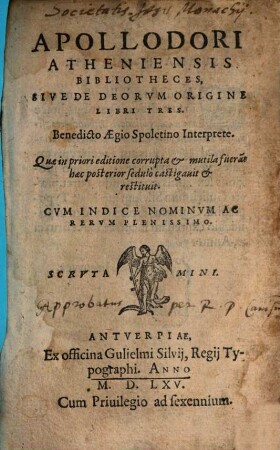 Societatis Jesu Monachij
APOLLODORI
ATHENIENSIS
BIBLIOTHECES,
SIVE DE DEORVM ORIGINE
LIBRI TRES.
Benedicto Ægio Spoletino Interprete.
Quæ in priori editione corrupta & mutila fuerãt
hæc posterior sedulò castigauit &
restituit.
CVM INDICE NOMINVM AC
RERVM PLENISSIMO.
SCRVTAMINI.
Approbatus per R. P.
ANTVERPIAE,
Ex officina Gulielmi Silvij, Regij Ty-
pographi. ANNO
M. D. LXV.
Cum Priuilegio ad sexennium.